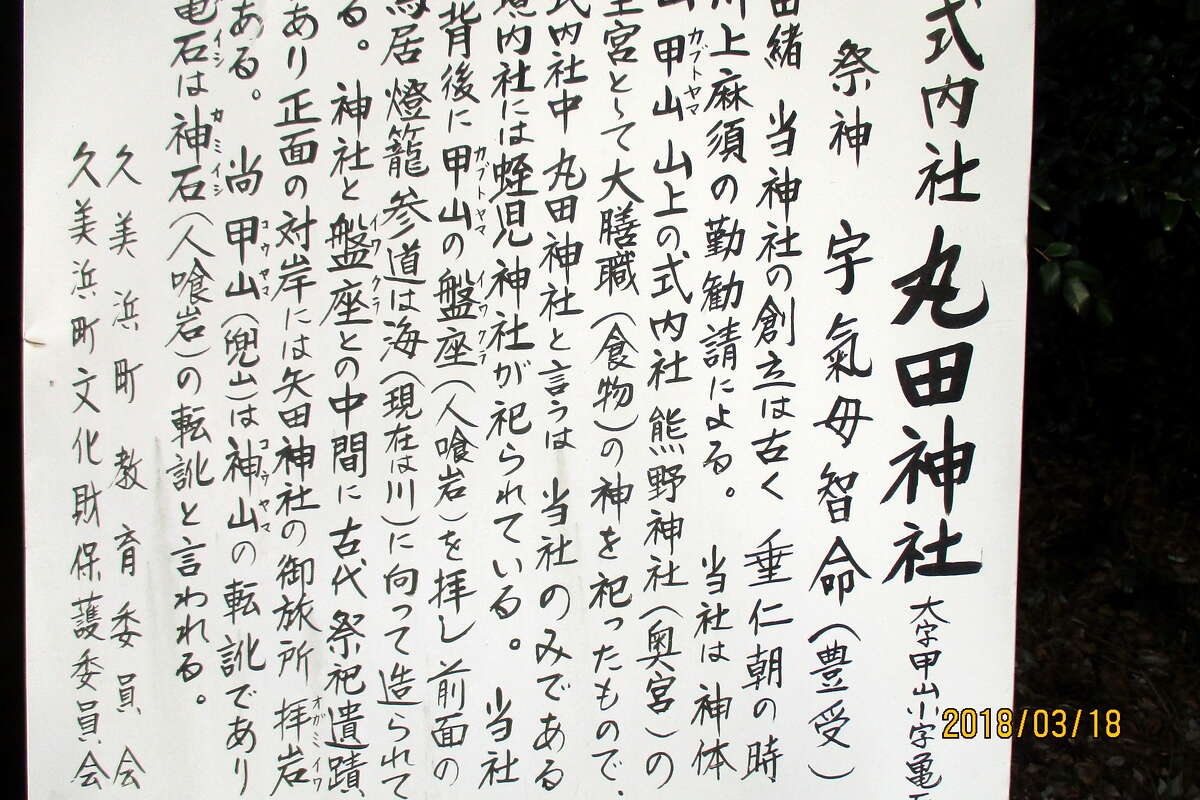 式内社 丸田神社 大字甲山小字亀石
祭神 宇氣母智命(豊受)
由緒 当神社の創立は古く 垂仁朝の時
川上麻須の勤勧請による。 当社は神体
山 甲山 カブトヤマ 山上の式内社 熊野神社(奥宮)の
里宮として大膳職(食物)の神を祀ったもので.
式内社中 丸田神社と言うは 当社のみである
境内社には蛭児神社が祀られている。 当社
背後に甲山 カブトヤマ の盤座 イワクラ (人喰岩)を拝し 前面の
鳥居 燈籠 参道は海(現在は川)に向って造られて
る。 神社と盤座 イワクラ との中間に古代祭祀遺蹟
あり正面の対岸には矢田神社の御旅所 拝岩 オガミイワ
ある。 尚 甲山 コウヤマ (兜山)は神山 コウヤマ の転訛であり
亀石 イシ は神石 カミイシ (人喰岩)の転訛と言われる。
久美浜町 教育委員会
久美浜町文化財保護委員会
2018/03/18